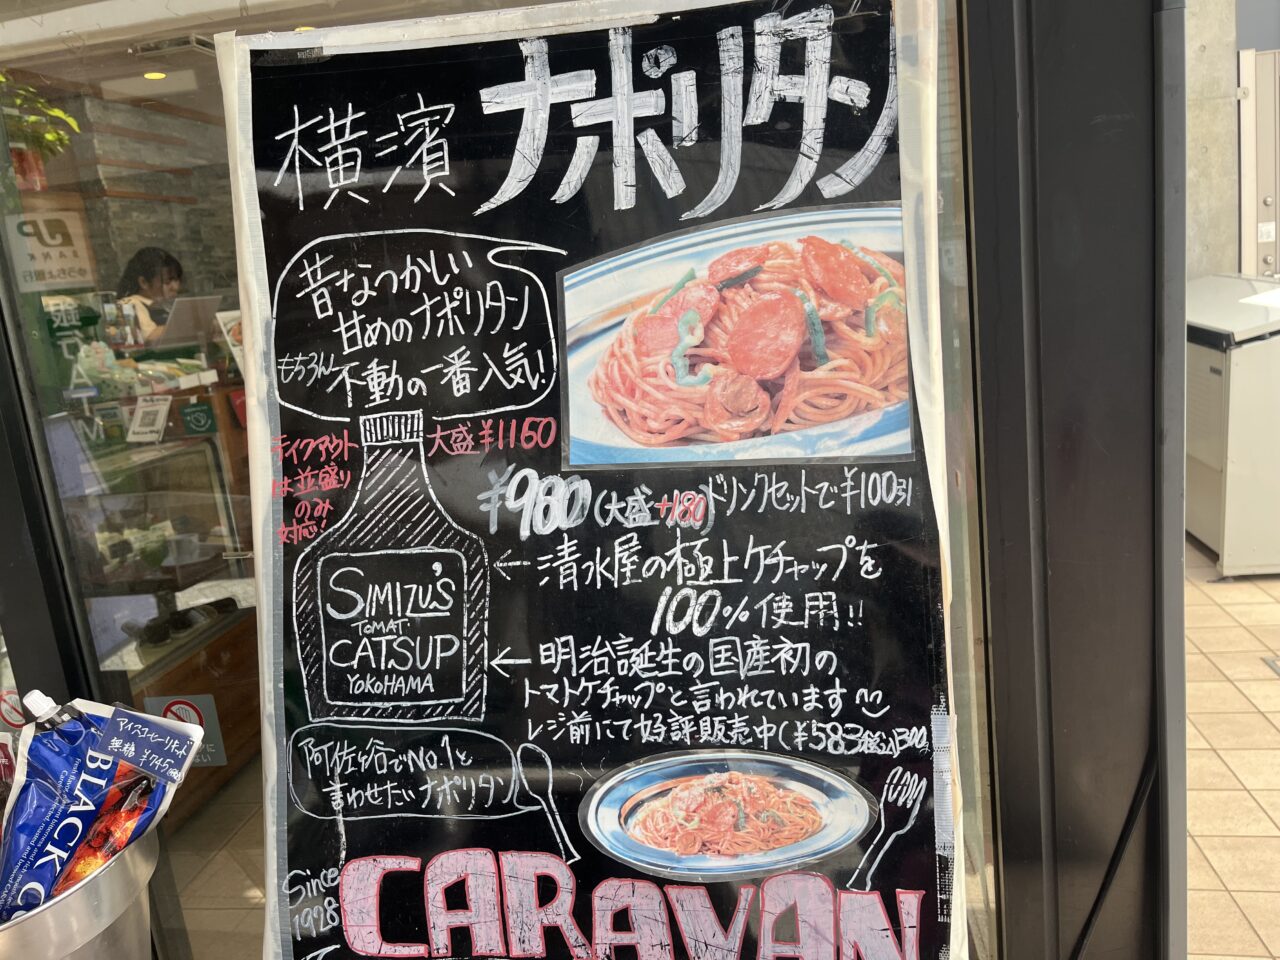 横濱 ナポリタン
昔なつかしい
甘めのナポリタン
もちろん 不動の一番人気!
テイクアウト
は並盛り
のみ
対応!
大盛 ¥1160
¥980 (大盛+180) ドリンクセットで¥100引
← 清水屋の極上ケチャップを
100%使用!!
SIMIZU'S
TOMATO
CATSUP
YOKOHAMA
← 明治誕生の国産初の
トマトケチャップと言われています
レジ前にて好評販売中(¥583税込)300g
阿佐ヶ谷でNo.1と
言わせたいナポリタン
Since
1928
CARAVAN
JP
BANK
ゆうちょ銀行
アイスコーヒーリキッド
無糖 ¥745
BLACK